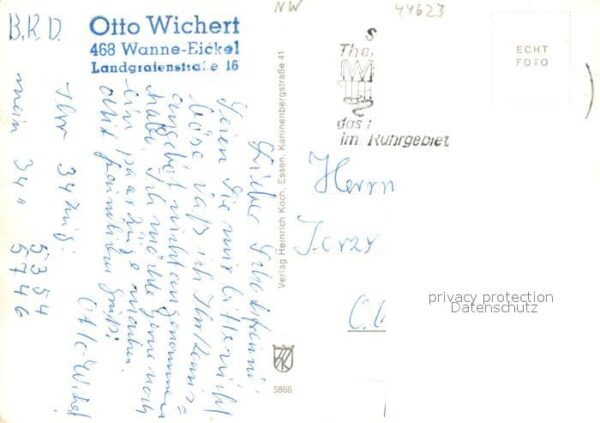 B.R.D.
Otto Wichert
468 Wanne-Eickel
Landgrafenstraße 16
NW
44623
Lieber Schachfreund
Seien Sie mir bitte nicht
böse daß ich Ihr Remis=
angebot nicht angenommen
habe. Ich möchte gerne noch
ein paar Züge machen.
Mit freundlichem Gruß:
Otto Wichert
Ihr 34 Zug: 5354
mein 34 " 5746
Verlag Heinrich Koch, Essen, Kaninenbergstraße 41
5866
The
das
im Ruhrgebiet
ECHT
FOTO
Herrn
Jerzy
privacy protection
Datenschutz